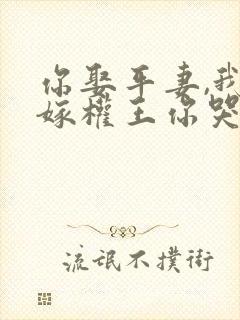 你娶平妻,我
嫁權王你哭
流氓不撲街